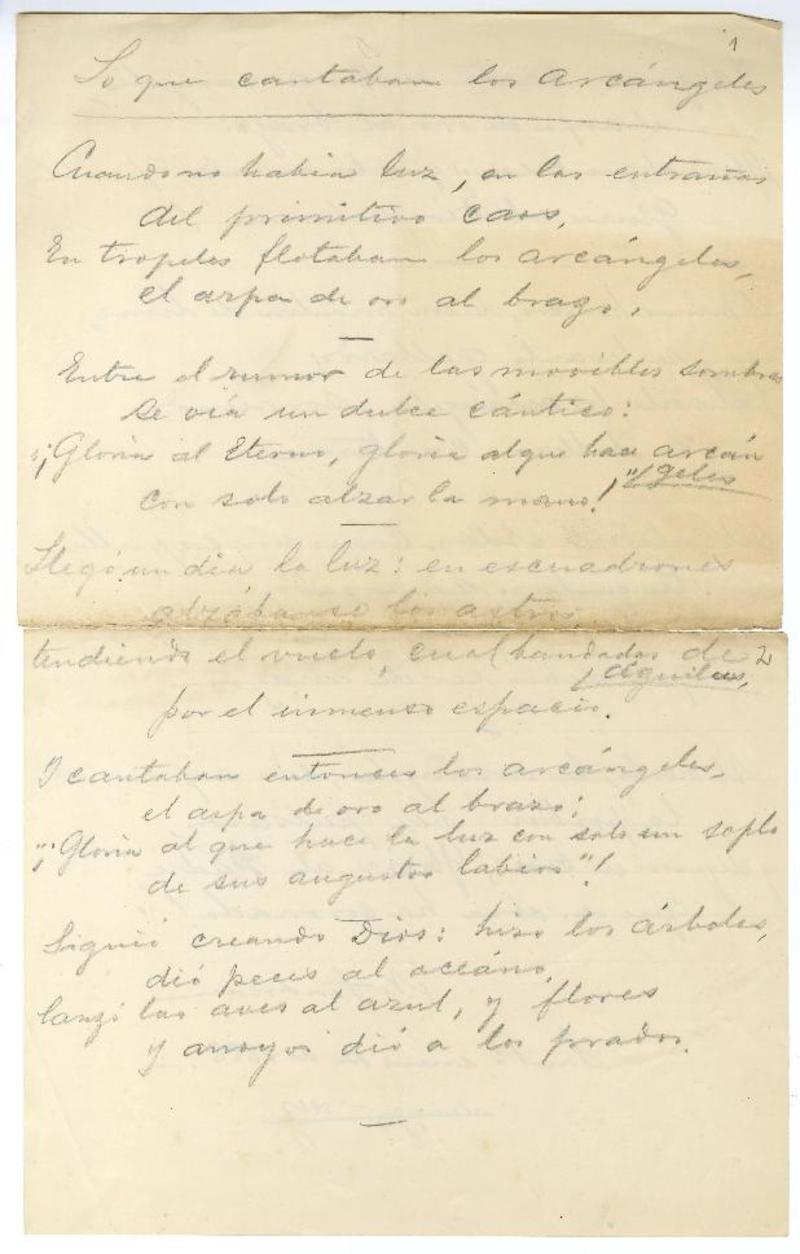 1
Lo que cantaban los arcángeles
Cuando no había luz, en las entrañas
del primitivo caos,
En tropeles flotaban los arcángeles,
el arpa de oro al brazo.
Entre el rumor de las movibles sombras
se oía un dulce cántico:
"¡Gloria al Eterno, gloria al que hace arcán
geles
con solo alzar la mano!"
Llegó un día la luz: en escuadrones
alzábanse los astros
tendiendo el vuelo, cual bandadas de 2
águilas,
por el inmenso espacio.
I cantaban entonces los arcángeles,
el arpa de oro al brazo:
"¡Gloria al que hace la luz con solo un soplo
de sus augustos labios"!
Siguió creando Dios: hizo los árboles,
dió peces al océano,
lanzó las aves al azul, y flores
y arroyos dió a los prados.